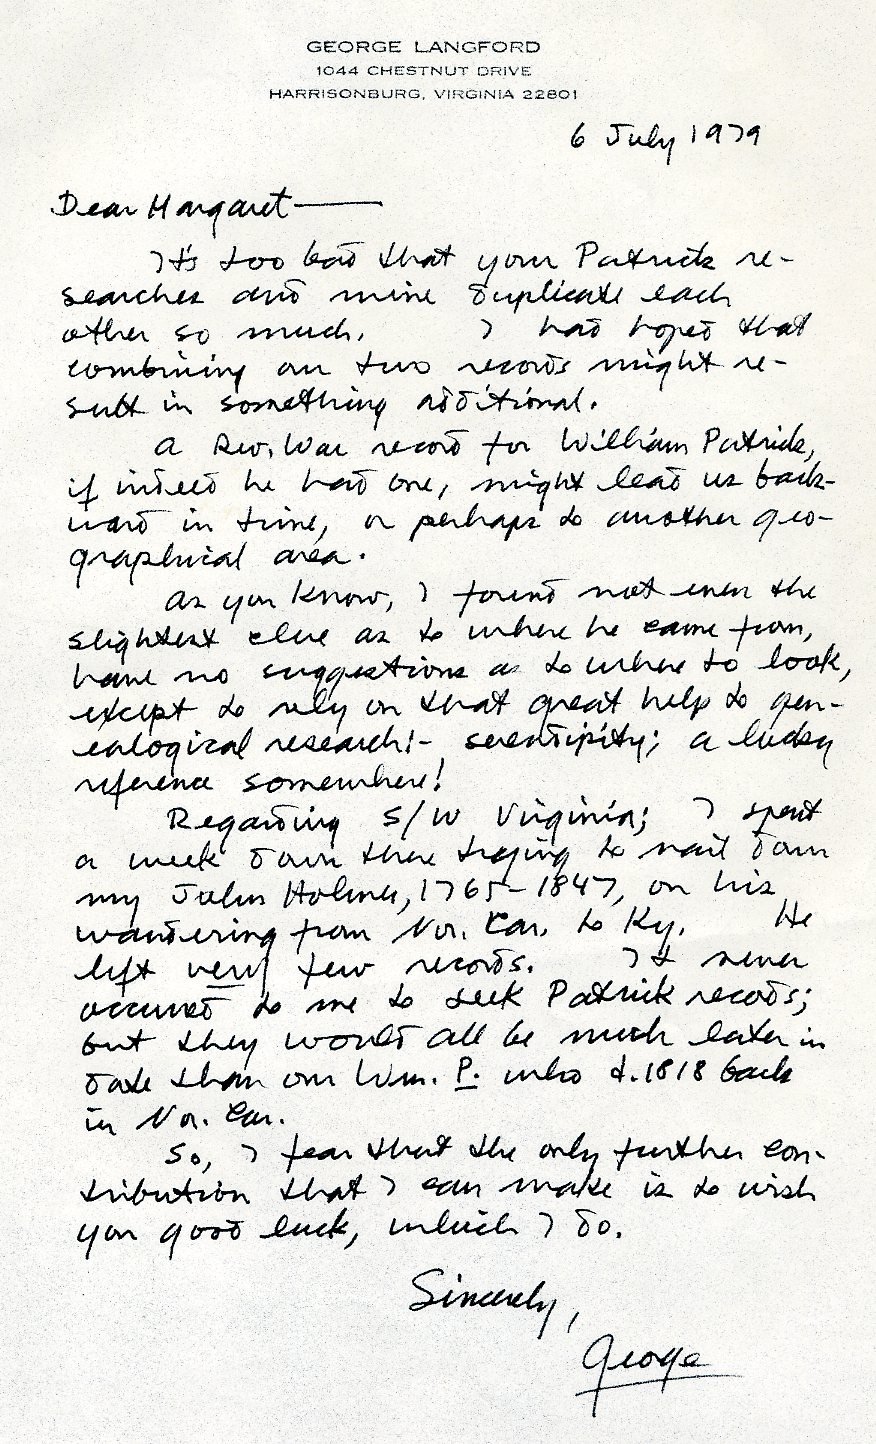 GEORGE LANGFORD
1044 CHESTNUT DRIVE
HARRISONBURG, VIRGINIA 22801
6 July 1979
Dear Margaret —
It's too bad that your Patrick re-
searches and mine duplicate each
other so much. I had hoped that
combining our two records might re-
sult in something additional.
A Rev. War record for William Patrick,
if indeed he had one, might lead us back-
ward in time, or perhaps to another geo-
graphical area.
As you know, I found not even the
slightest clue as to where he came from,
have no suggestions as to where to look,
except to rely on that great help to gen-
ealogical research:- serendipity; a lucky
reference somewhere!
Regarding S/W Virginia; I spent
a week down there trying to nail down
my John Holmes, 1765-1847, on his
wandering from Nor. Car. to Ky. He
left very few records. It never
occurred to me to seek Patrick records;
but they would all be much later in
date than our Wm. P. who d. 1818 back
in Nor. Car.
So, I fear that the only further con-
tribution that I can make is to wish
you good luck, which I do.
Sincerely,
George